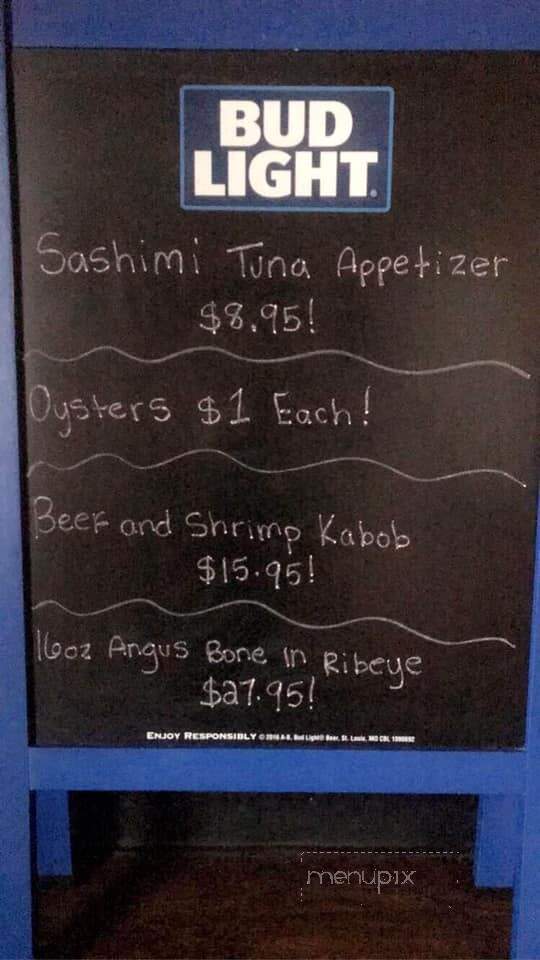 BUD
LIGHT
Sashimi Tuna Appetizer
$8.95!
Oysters $1 Each!
Beef and Shrimp Kabob
$15.95!
16oz Angus Bone in Ribeye
$27.95!
ENJOY RESPONSIBLY © 2016 A-B, Bud Light® Beer, St. Louis, MO
menupix